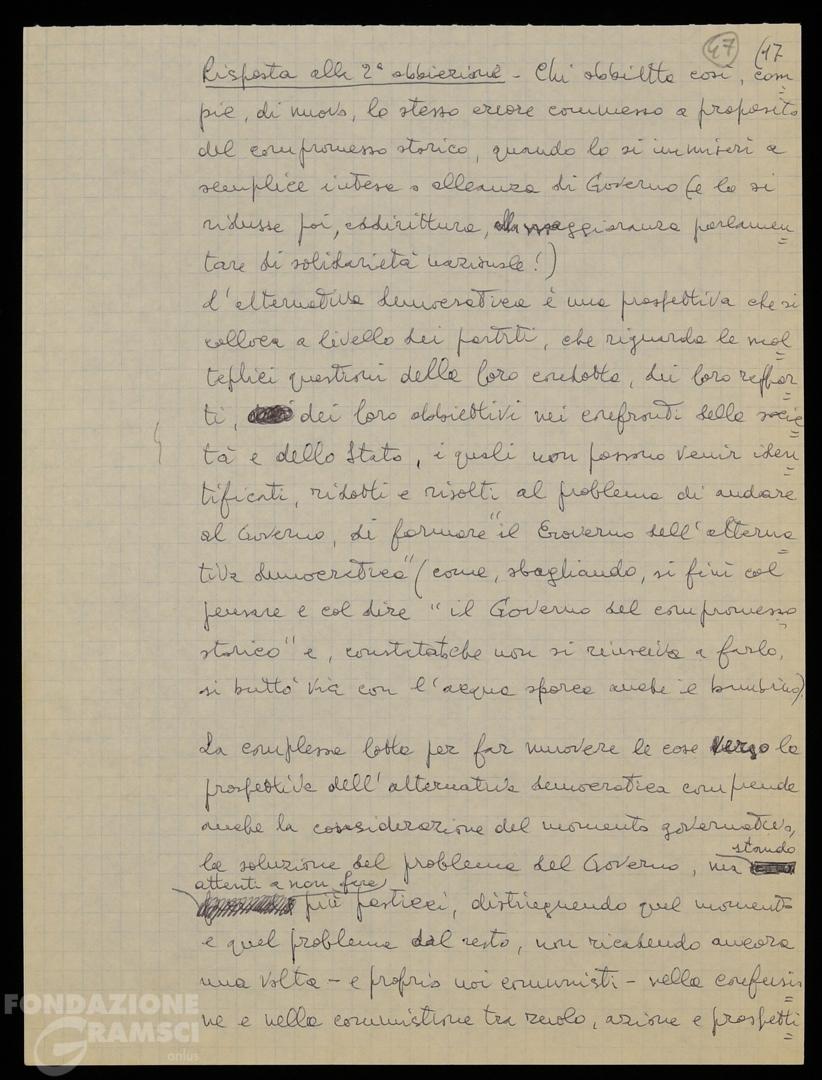 47 (17
Risposta alla 2ª obbiezione - Chi obbietta così, com=
pie, di nuovo, lo stesso errore commesso a proposito
del compromesso storico, quando lo si immiserì a
semplice intesa o alleanza di Governo (e lo si
ridusse poi, addirittura, alla maggioranza parlamen=
tare di solidarietà nazionale!)
L'alternativa democratica è una prospettiva che si
colloca a livello dei partiti, che riguarda le mol=
teplici questioni della loro condotta, dei loro rappor=
ti, dei loro obbiettivi nei confronti della socie=
tà e dello Stato, i quali non possono venir iden=
tificati, ridotti e risolti al problema di andare
al Governo, di formare "il Governo dell'alterna=
tiva democratica" (come, sbagliando, si finì col
pensare e col dire "il Governo del compromesso
storico" e, constatato che non si riusciva a farlo,
si buttò via con l'acqua sporca anche il bambino).
La complessa lotta per far muovere le cose verso la
prospettiva dell'alternativa democratica comprende
anche la considerazione del momento governativo,
la soluzione del problema del Governo, ma stando
attenti a non fare
più pasticci, distinguendo quel momento
e quel problema dal resto, non ricadendo ancora
una volta - e proprio noi comunisti - nella confusio=
ne e nella commistione tra ruolo, azione e prospetti=
FONDAZIONE
GRAMSCI
onlus